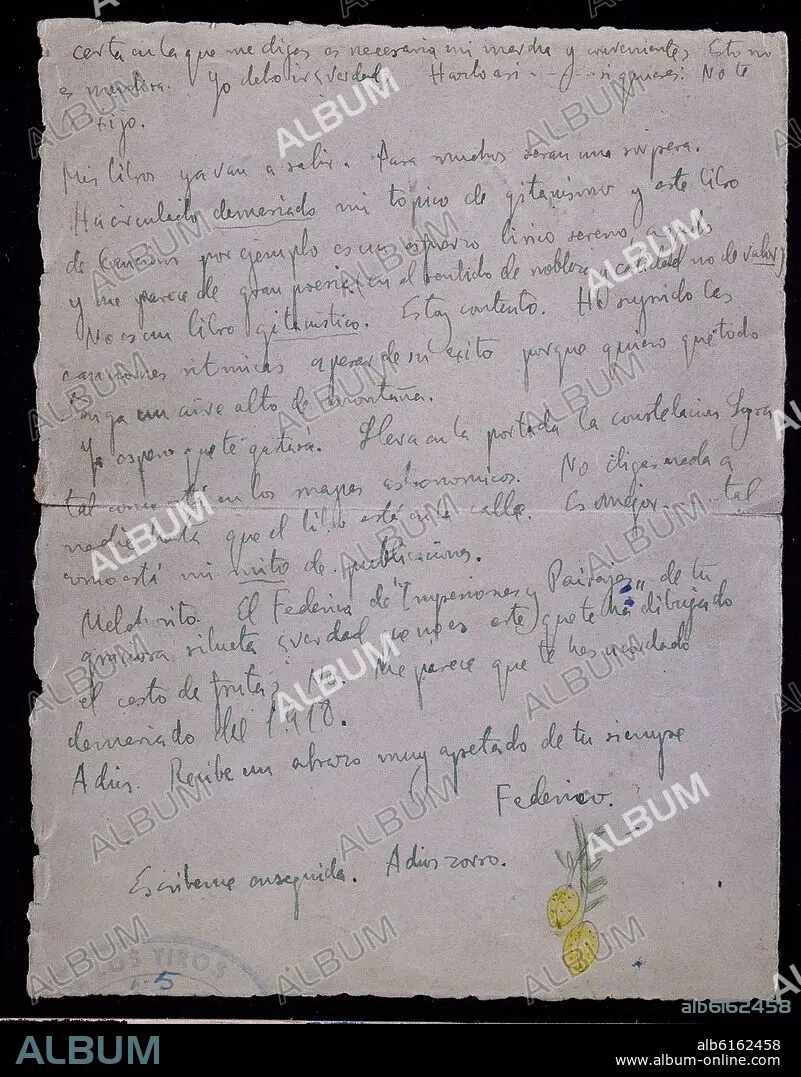 carta en la que me digas es necesaria mi marcha y conveniente; Esto no
es mentira. Yo debo ir ¿verdad? Hazlo así ... si quieres: No te
exijo.
Mis libros ya van a salir. Para muchos seran una sorpresa.
Ha circulado demasiado mi tópico de gitanismo y este libro
de Canciones por ejemplo es un esfuerzo lírico sereno agudo
y me parece de gran poesia (en el sentido de nobleza y calidad no de valor)
No es un libro gitanístico. Estoy contento. He suprimido las
canciones rítmicas a pesar de su exito porque quiero que todo
tenga un aire alto de montaña.
Yo espero que te gustará. Lleva en la portada la constelacion Lyra
tal como está en los mapas astronomicos. No digas nada a
nadie hasta que el libro esté en la calle. Es mejor ..... tal
como está mi mito de publicaciones.
Melchorito. El Federico de "Impresiones y Paisajes" de tu
graciosa silueta ¿verdad que no es este que te ha dibujado
el cesto de frutas? No. Me parece que te has acordado
demasiado del 1.918.
Adios. Recibe un abrazo muy apretado de tu siempre
Federico.
Escribeme enseguida. Adios zorro.
LOS TIROS
5
ALBUM
alb6162458
ALBUM
alb6162458
www.album-online.com